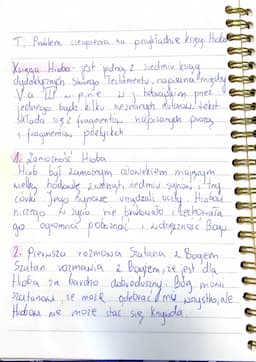 T: Problem cierpienia na przykładzie księgi Hioba
Księga Hioba - jest jedną z siedmiu ksiąg
dydaktycznych Starego Testamentu, napisana między
V a III w p.n.e. w j. hebrajskim przez
jednego bądź kilku nieznanych autorów. Tekst
składa się z fragmentów napisanych prozą
i fragmentów poetyckich
1. Zamożność Hioba
Hiob był zamożnym człowiekiem mającym
wielką hodowlę zwierząt, siedmiu synów i trzy
córki. Jego synowie urządzali uczty. Hiobowi
niczego w życiu nie brakowało i cechowała
go ogromna pobożność i wdzięczność Bogu.
2. Pierwsza rozmowa Szatana z Bogiem
Szatan rozmawia z Bogiem, że jest dla
Hioba za bardzo dobroduszny. Bóg mówi
szatanowi, że może odebrać mu wszystko, ale
Hiobowi nie może stać się krzywda.